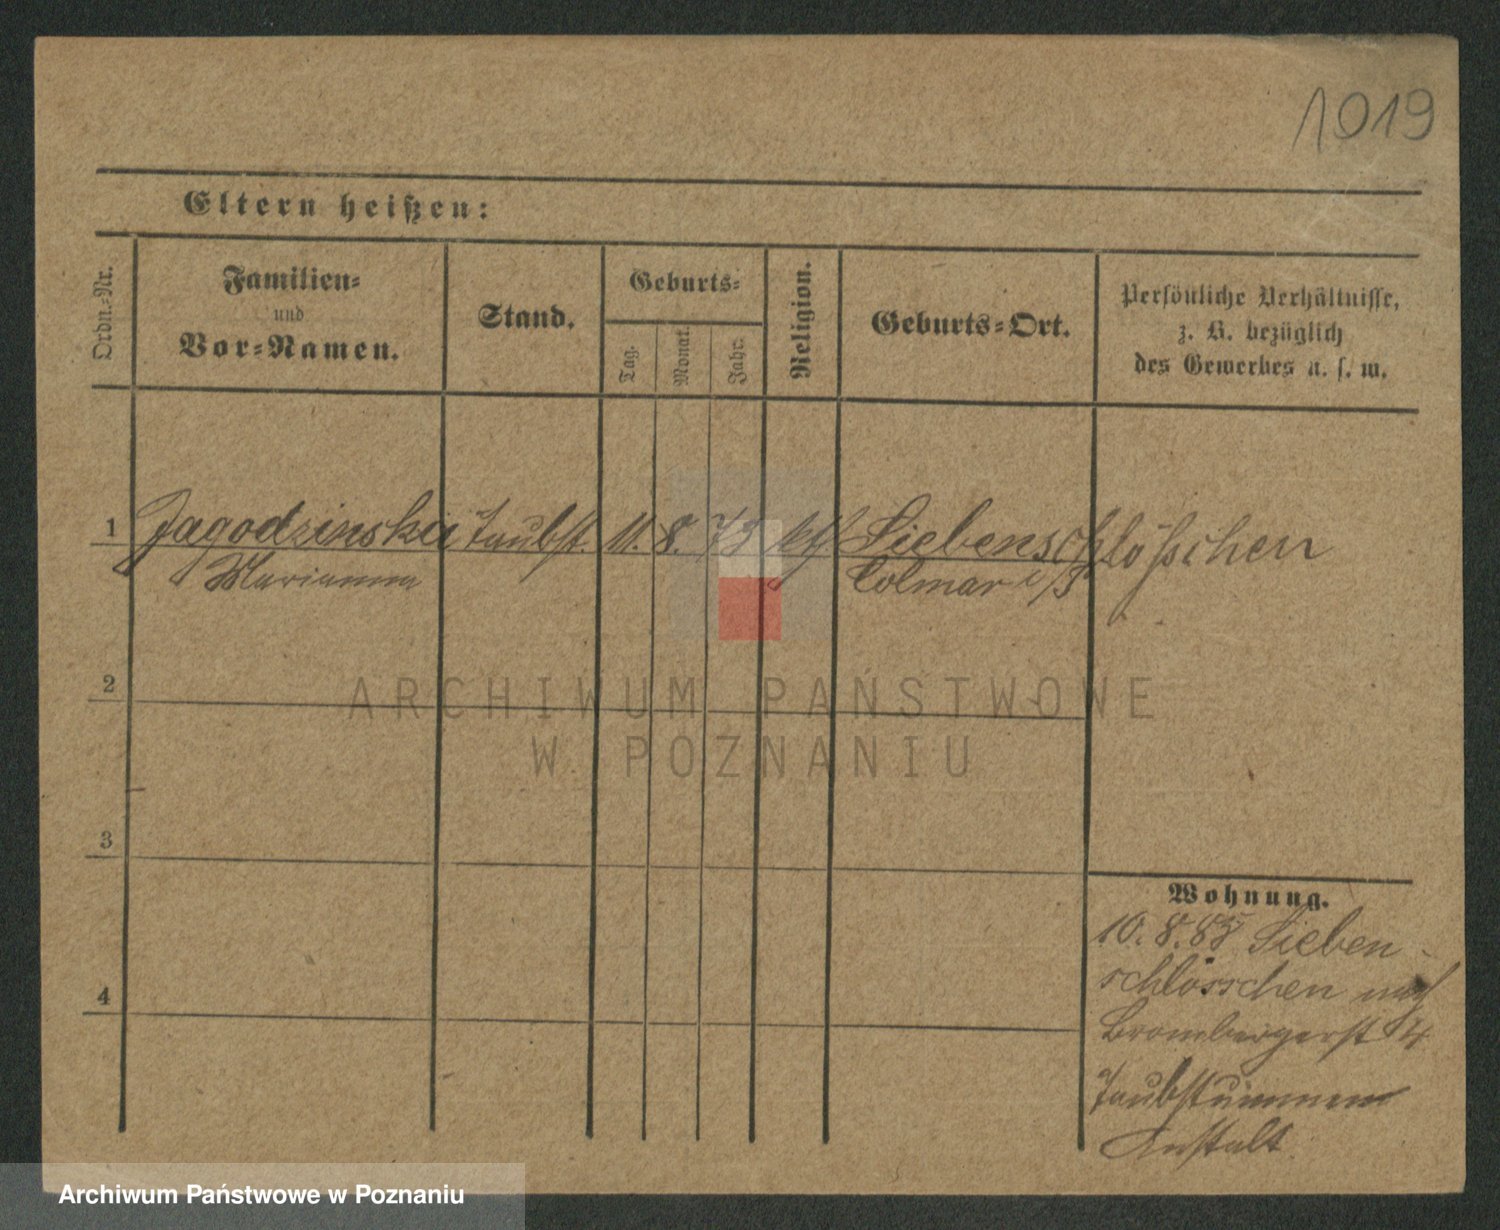 1019
Eltern heißen:
Ordn.-Nr.
Familien-
und
Vor-Namen.
Stand.
Geburts-
Tag.
Monat.
Jahr.
Religion.
Geburts-Ort.
Persönliche Verhältnisse,
z. B. bezüglich
des Gewerbes u. s. w.
1 Jagodzinska taubst. 11. 8. 73 kth Liebenschlößchen
Marianna Colmar i/P
2
3
4
Wohnung.
10. 8. 88 Lieben-
schlösschen nach
Brombergerst 4
Taubstummen
Anstalt
ARCHIWUM PAŃSTWOWE
W POZNANIU
Archiwum Państwowe w Poznaniu